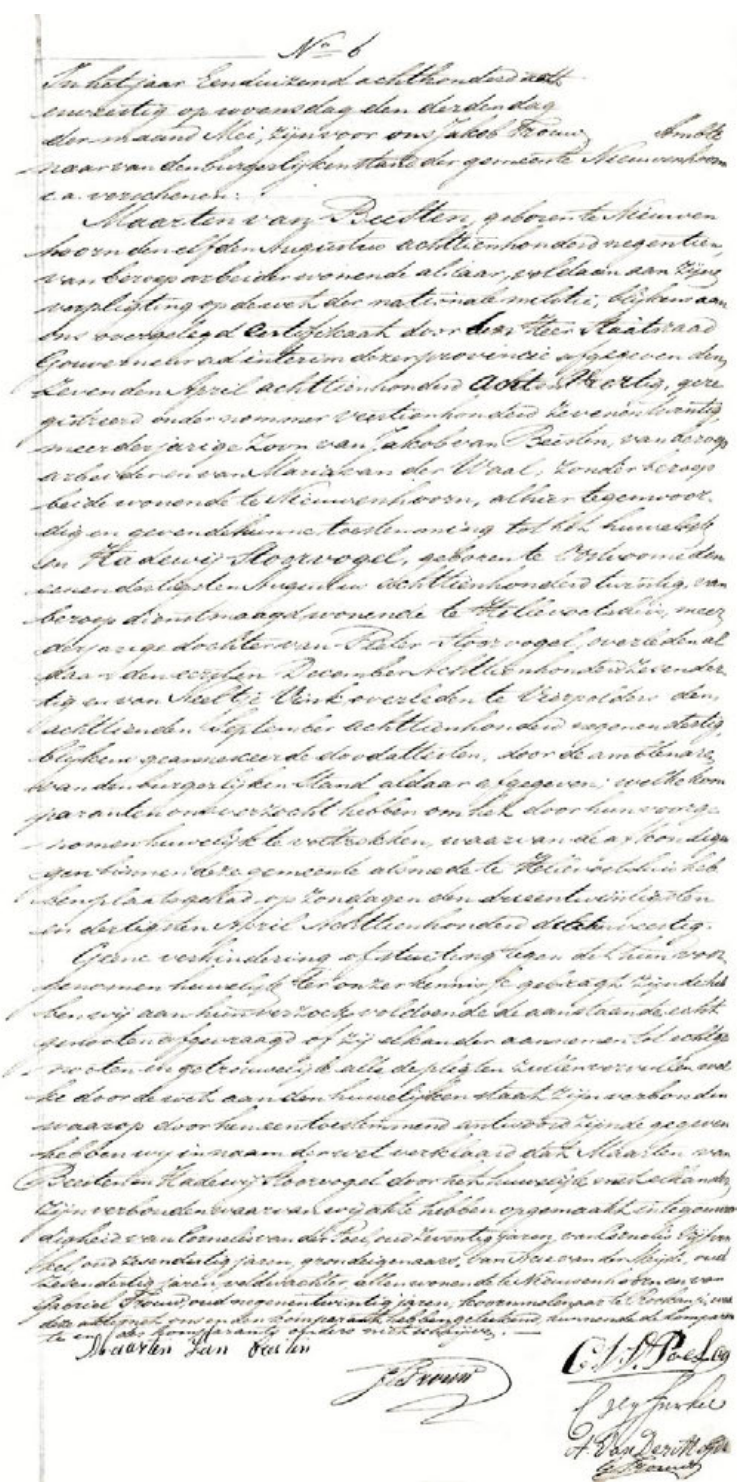 No 6
In het jaar Eenduizend achthonderd acht
en veertig op woensdag den derden dag
der maand Mei, zijn voor ons Jakob Trouw Ambte
naar van den burgerlijken stand der gemeente Nieuwenhoorn
c.a. verschenen:
Maarten van Beesten, geboren te Nieuwen
hoorn den elfden Augustus achttienhonderd negentien,
van beroep arbeider wonende aldaar, voldaan aan zijne
verpligting op de wet der nationale militie, blijkens aan
ons overgelegd Certifikaat door den Heer Staatsraad
Gouverneur ad interim dezer provincie afgegeven den
Zevenden April achttienhonderd Acht en Veertig, gere
gistreerd onder nommer veertienhonderd zevenentwintig,
meerderjarige Zoon van Jakob van Beesten, van beroep
arbeider en van Maria van der Waal, zonder beroep
beide wonende te Nieuwenhoorn, alhier tegenwoor
dig en gevende hunne toestemming tot het huwelijk
en Hadewij Stoorvogel, geboren te Oostvoorne den
eenendertigsten Augustus achttienhonderd twintig, van
beroep dienstmaagd, wonende te Hellevoetsluis, meer
derjarige dochter van Pieter Stoorvogel, overleden al
daar den eersten December Achttienhonderd zevender
tig en van Neeltje Vink overleden te Vierpolders den
achttienden September achttienhonderd negenendertig,
blijkens geannexeerde doodattesten, door de ambtenaren
van den burgerlijken Stand aldaar afgegeven; welke kom
paranten ons verzocht hebben om het door hun voorge
nomen huwelijk te voltrekken, waarvan de afkondigin
gen binnen deze gemeente alsmede te Hellevoetsluis heb
ben plaats gehad op Zondagen den drieentwintigsten
en dertigsten April Achttienhonderd achtenveertig.
Geene verhindering of stuiting tegen dit hun voor
genomen huwelijk ter onzer kennisse gebragt zijnde heb
ben wij aan hun verzoek voldoende de aanstaande echt
genooten afgevraagd of zij elkander aannemen tot echtge
nooten en getrouwelijk alle de pligten zullen vervullen wel
ke door de wet aan den huwelijken staat zijn verbonden
waarop door hun een toestemmend antwoord zijnde gegeven
hebben wij in naam der wet verklaard dat Maarten van
Beesten en Hadewij Stoorvogel door het huwelijk met elkander
zijn verbonden waarvan wij akte hebben opgemaakt in tegenwoor
digheid van Cornelis van der Poel, oud Zeventig jaren, van Cornelis
oud zesendertig jaren, grondeigenaars, van Arie van der Meijde, oud
zesendertig jaren, veldwachter, allen wonende te Nieuwenhoorn en van
Gabriel Trouw, oud negenentwintig jaren, koornmolenaar te Rockanje, welke
deze akte met ons en den komparant hebben geteekend, kunnende de komparan
te en des komparants ouders niet schrijven.
Maarten Van Beesten
J. Trouw
C. V. D. Poel
A. Van Der Meijde
G. Trouw